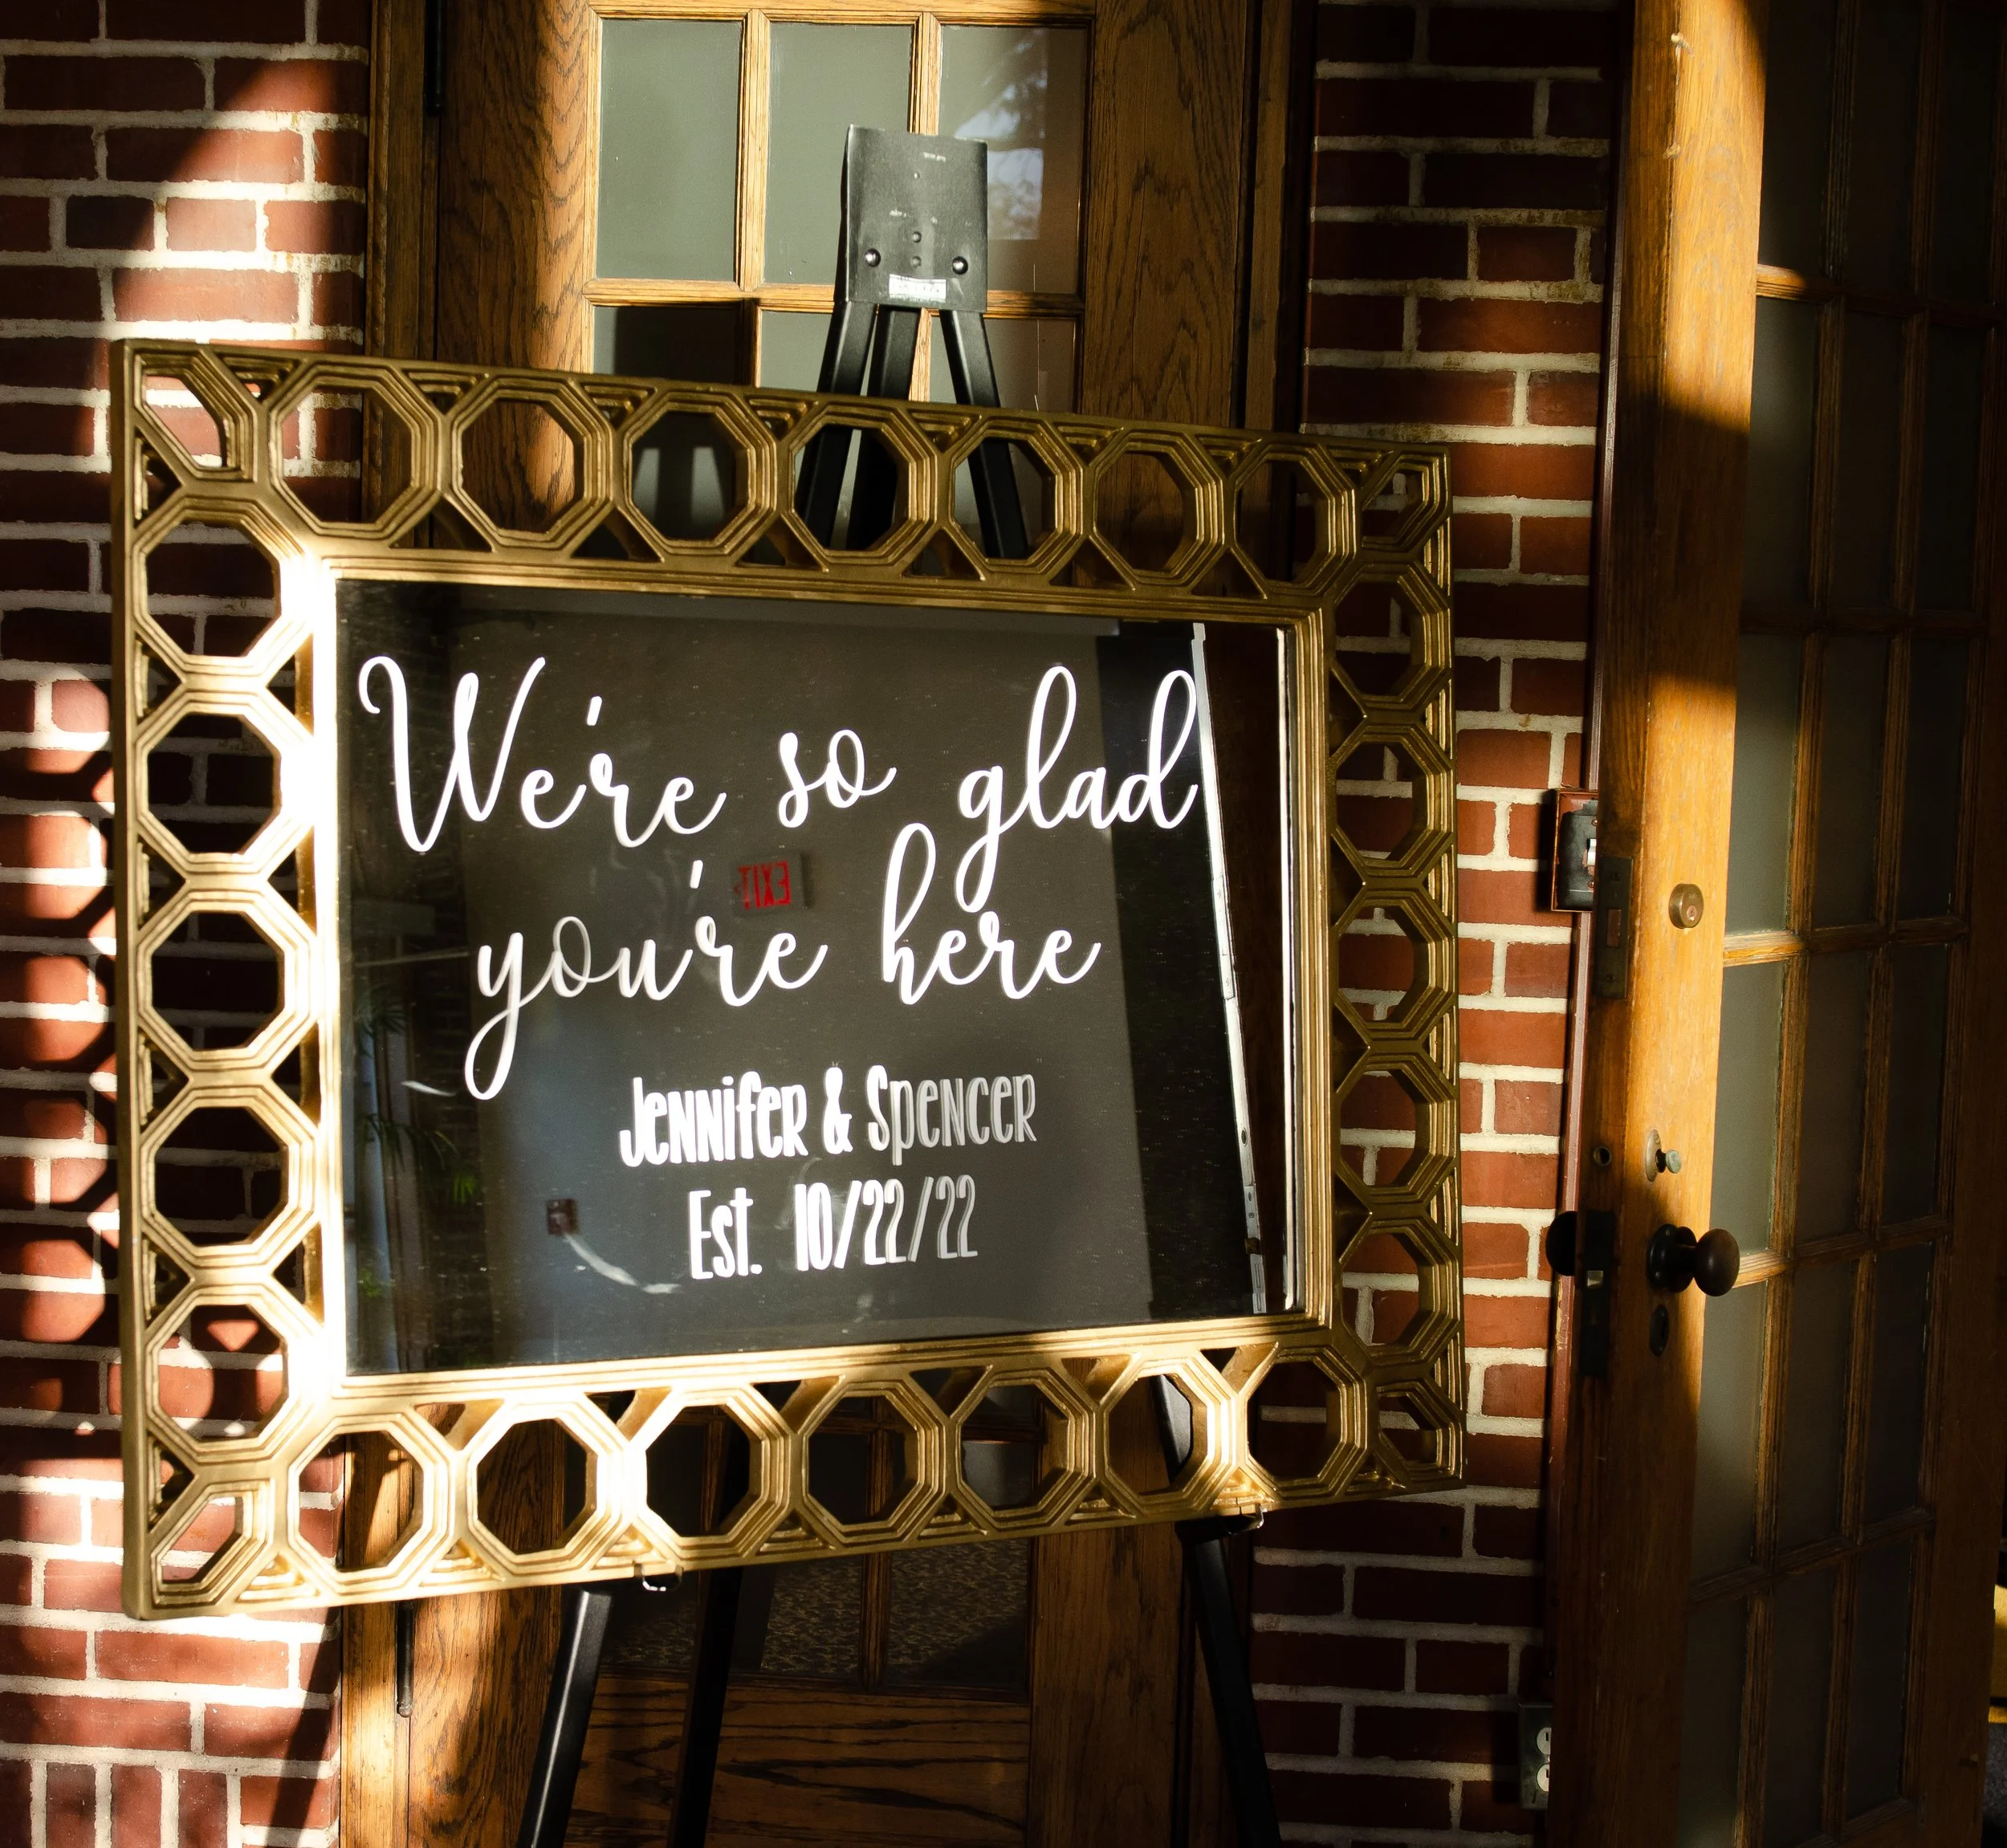 We're so glad
EXIT
you're here
Jennifer & Spencer
Est. 10/22/22